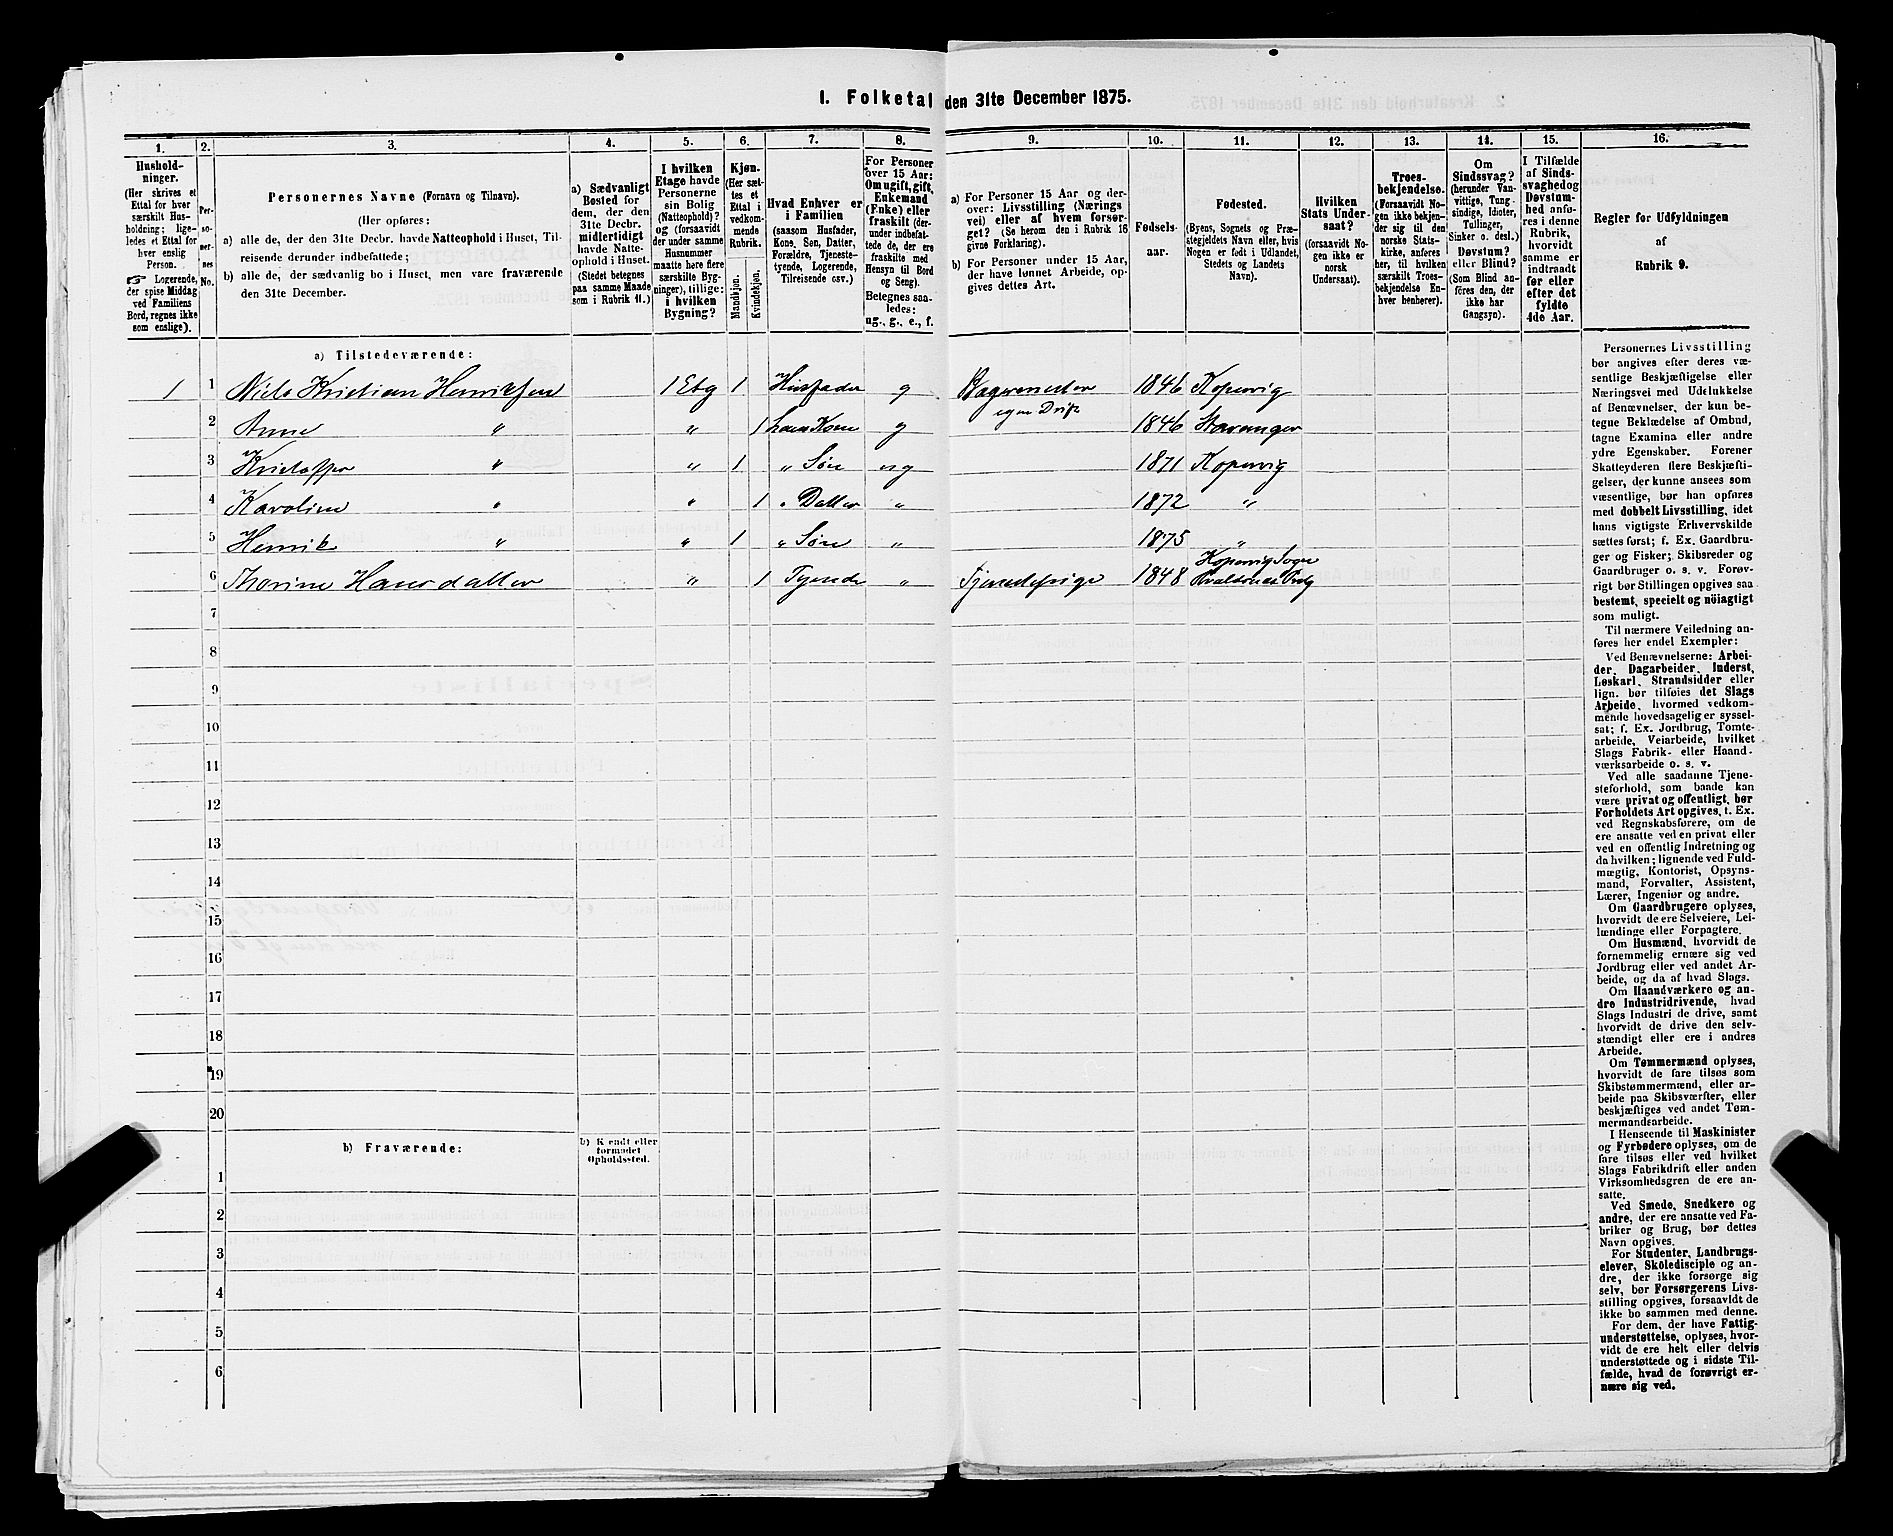 1. Folketal den 31te December 1875.
1. 2. 3. 4. 5. 6. 7. 8. 9. 10. 11. 12. 13. 14. 15. 16.
Hushold-
ninger.
(Her skrives et
Ettal for hver
særskilt Hus-
holdning; lige-
ledes et Ettal for
hver enslig
Person.
Logerende,
der spise Middag
ved Familiens
Bord, regnes ikke
som enslige).
Per-
so-
ner-
nes
No.
Personernes Navne (Fornavn og Tilnavn).
(Her opføres:
a) alle de, der den 31te Decbr. havde Natteophold i Huset, Til-
reisende derunder indbefattede;
b) alle de, der sædvanlig bo i Huset, men vare fraværende
den 31te December.
a) Sædvanligt
Bosted for
dem, der den
31te Decbr.
midlertidigt
havde Natte-
ophold i Huset.
(Stedet betegnes
paa samme Maade
som i Rubrik 11.)
I hvilken
Etage havde
Personerne
sin Bolig
(Natteophold)?
og (forsaavidt
der under samme
Husnummer
maatte høre flere
særskilte Byg-
ninger), tillige:
i hvilken
Bygning?
Kjøn.
(Her sæt-
tes et
Ettal i
vedkom-
mende
Rubrik.
Mandkjøn.
Kvindekjøn.
Hvad Enhver er
i Familien
(saasom Husfader,
Kone, Søn, Datter,
Forældre, Tjeneste-
tyende, Logerende,
Tilreisende osv.).
For Personer
over 15 Aar:
Om ugift, gift,
Enkemand
(Enke) eller
fraskilt (der-
under indbefat-
tede de, der ere
fraskilte med
Hensyn til Bord
og Seng).
Betegnes saa-
ledes:
ug., g., e., f.
a) For Personer 15 Aar og der-
over: Livsstilling (Nærings-
vei) eller af hvem forsør-
get? (Se herom den i Rubrik 16
givne Forklaring).
b) For Personer under 15 Aar,
der have lønnet Arbeide, op-
gives dettes Art.
Fødsels-
aar.
Fødested.
(Byens, Sognets og Præ-
stegjeldets Navn eller, hvis
Nogen er født i Udlandet,
Stedets og Landets
Navn).
Hvilken
Stats Under-
saat?
(forsaavidt No-
gen ikke er
norsk
Undersaat).
Troes-
bekjendelse.
(Forsaavidt No-
gen ikke bekjen-
der sig til den
norske Stats-
kirke, anføres
her, til hvilken
særskilt Troes-
bekjendelse En-
hver henhører).
Om
Sindssvag?
(herunder Van-
vittige, Tung-
sindige, Idioter,
Tullinger,
Sinker o. desl.)
Døvstum?
eller Blind?
(Som Blind an-
føres den, der
ikke har
Gangsyn).
I Tilfælde
af Sinds-
svaghed og
Døvstum-
hed anfø-
res i denne
Rubrik,
hvorvidt
samme er
indtraadt
før eller
efter det
fyldte
4de Aar.
Regler for Udfyldningen
af
Rubrik 9.
a) Tilstedeværende:
1 1 Niels Kristian Henriksen 1 Etg 1 Husfader g Bagermester 1846 Kopervig
egen Drift
2 Anne " " 1 hans Kone g 1846 Stavanger
3 Kristoffer " " 1 " Søn ug 1871 Kopervig
4 Karoline " " 1 " Datter " 1872 "
5 Henrik " " 1 " Søn " 1875 "
Kopervig Sogn
6 Thorine Hansdatter " 1 Tyende " Tjenestepige 1848
7
8
9
10
11
12
13
14
15
16
17
18
19
20
b) Fraværende:
b) Kjendt eller
formodet
Opholdssted.
1
2
3
4
5
6
Personernes Livsstilling
bør angives efter deres væ-
sentlige Beskjæftigelse eller
Næringsvei med Udelukkelse
af Benævnelser, der kun be-
tegne Beklædelse af Ombud,
tagne Examina eller andre
ydre Egenskaber. Forener
Skatteyderen flere Beskjæfti-
gelser, der kunne ansees som
væsentlige, bør han opføres
med dobbelt Livsstilling, idet
hans vigtigste Erhvervskilde
sættes først; f. Ex. Gaardbru-
ger og Fisker; Skibsreder og
Gaardbruger o. s. v. Forøv-
rigt bør Stillingen opgives saa
bestemt, specielt og nöiagtigt
som muligt.
Til nærmere Veiledning an-
føres her endel Exempler:
Ved Benævnelserne: Arbei-
der, Dagarbeider, Inderst,
Løskarl, Strandsidder eller
lign. bør tilføies det Slags
Arbeide, hvormed vedkom-
mende hovedsagelig er syssel-
sat; f. Ex. Jordbrug, Tomte-
arbeide, Veiarbeide, hvilket
Slags Fabrik- eller Haand-
værksarbeide o. s. v.
Ved alle saadanne Tjene-
steforhold, som baade kan
være privat og offentligt, bør
Forholdets Art opgives, t. Ex.
ved Regnskabsførere, om de
ere ansatte ved en privat eller
ved en offentlig Indretning og
da hvilken; lignende ved Fuld-
mægtig, Kontorist, Opsyns-
mand, Forvalter, Assistent,
Lærer, Ingeniør og andre.
Om Gaardbrugere oplyses,
hvorvidt de ere Selveiere, Lei-
lændinge eller Forpagtere.
Om Husmænd, hvorvidt de
fornemmelig ernære sig ved
Jordbrug eller ved andet Ar-
beide, og da af hvad Slags.
Om Haandværkere og an-
dre Industridrivende, hvad
Slags Industri de drive, samt
hvorvidt de drive den selv-
stændigt eller ere i andres
Arbeide.
Om Tømmermænd oplyses,
hvorvidt de fare tilsøs som
Skibstømmermænd, eller ar-
beide paa Skibsværfter, eller
beskjæftiges ved andet Tøm-
mermandsarbeide.
I Henseende til Maskinister
og Fyrbødere oplyses, om de
fare tilsøs eller ved hvilket
Slags Fabrikdrift eller anden
Virksomhedsgren de ere an-
satte.
Ved Smede, Snedkere og
andre, der ere ansatte ved Fa-
briker og Brug, bør dettes
Navn opgives.
For Studenter, Landbrugs-
elever, Skoledisciple og an-
dre, der ikke forsørge sig
selv, bør Forsørgerens Livs-
stilling opgives, forsaavidt de
ikke bo sammen med denne.
For dem, der have Fattig-
understøttelse, oplyses, hvor-
vidt de ere helt eller delvis
understøttede og i sidste Til-
fælde, hvad de forøvrigt er-
nære sig ved.